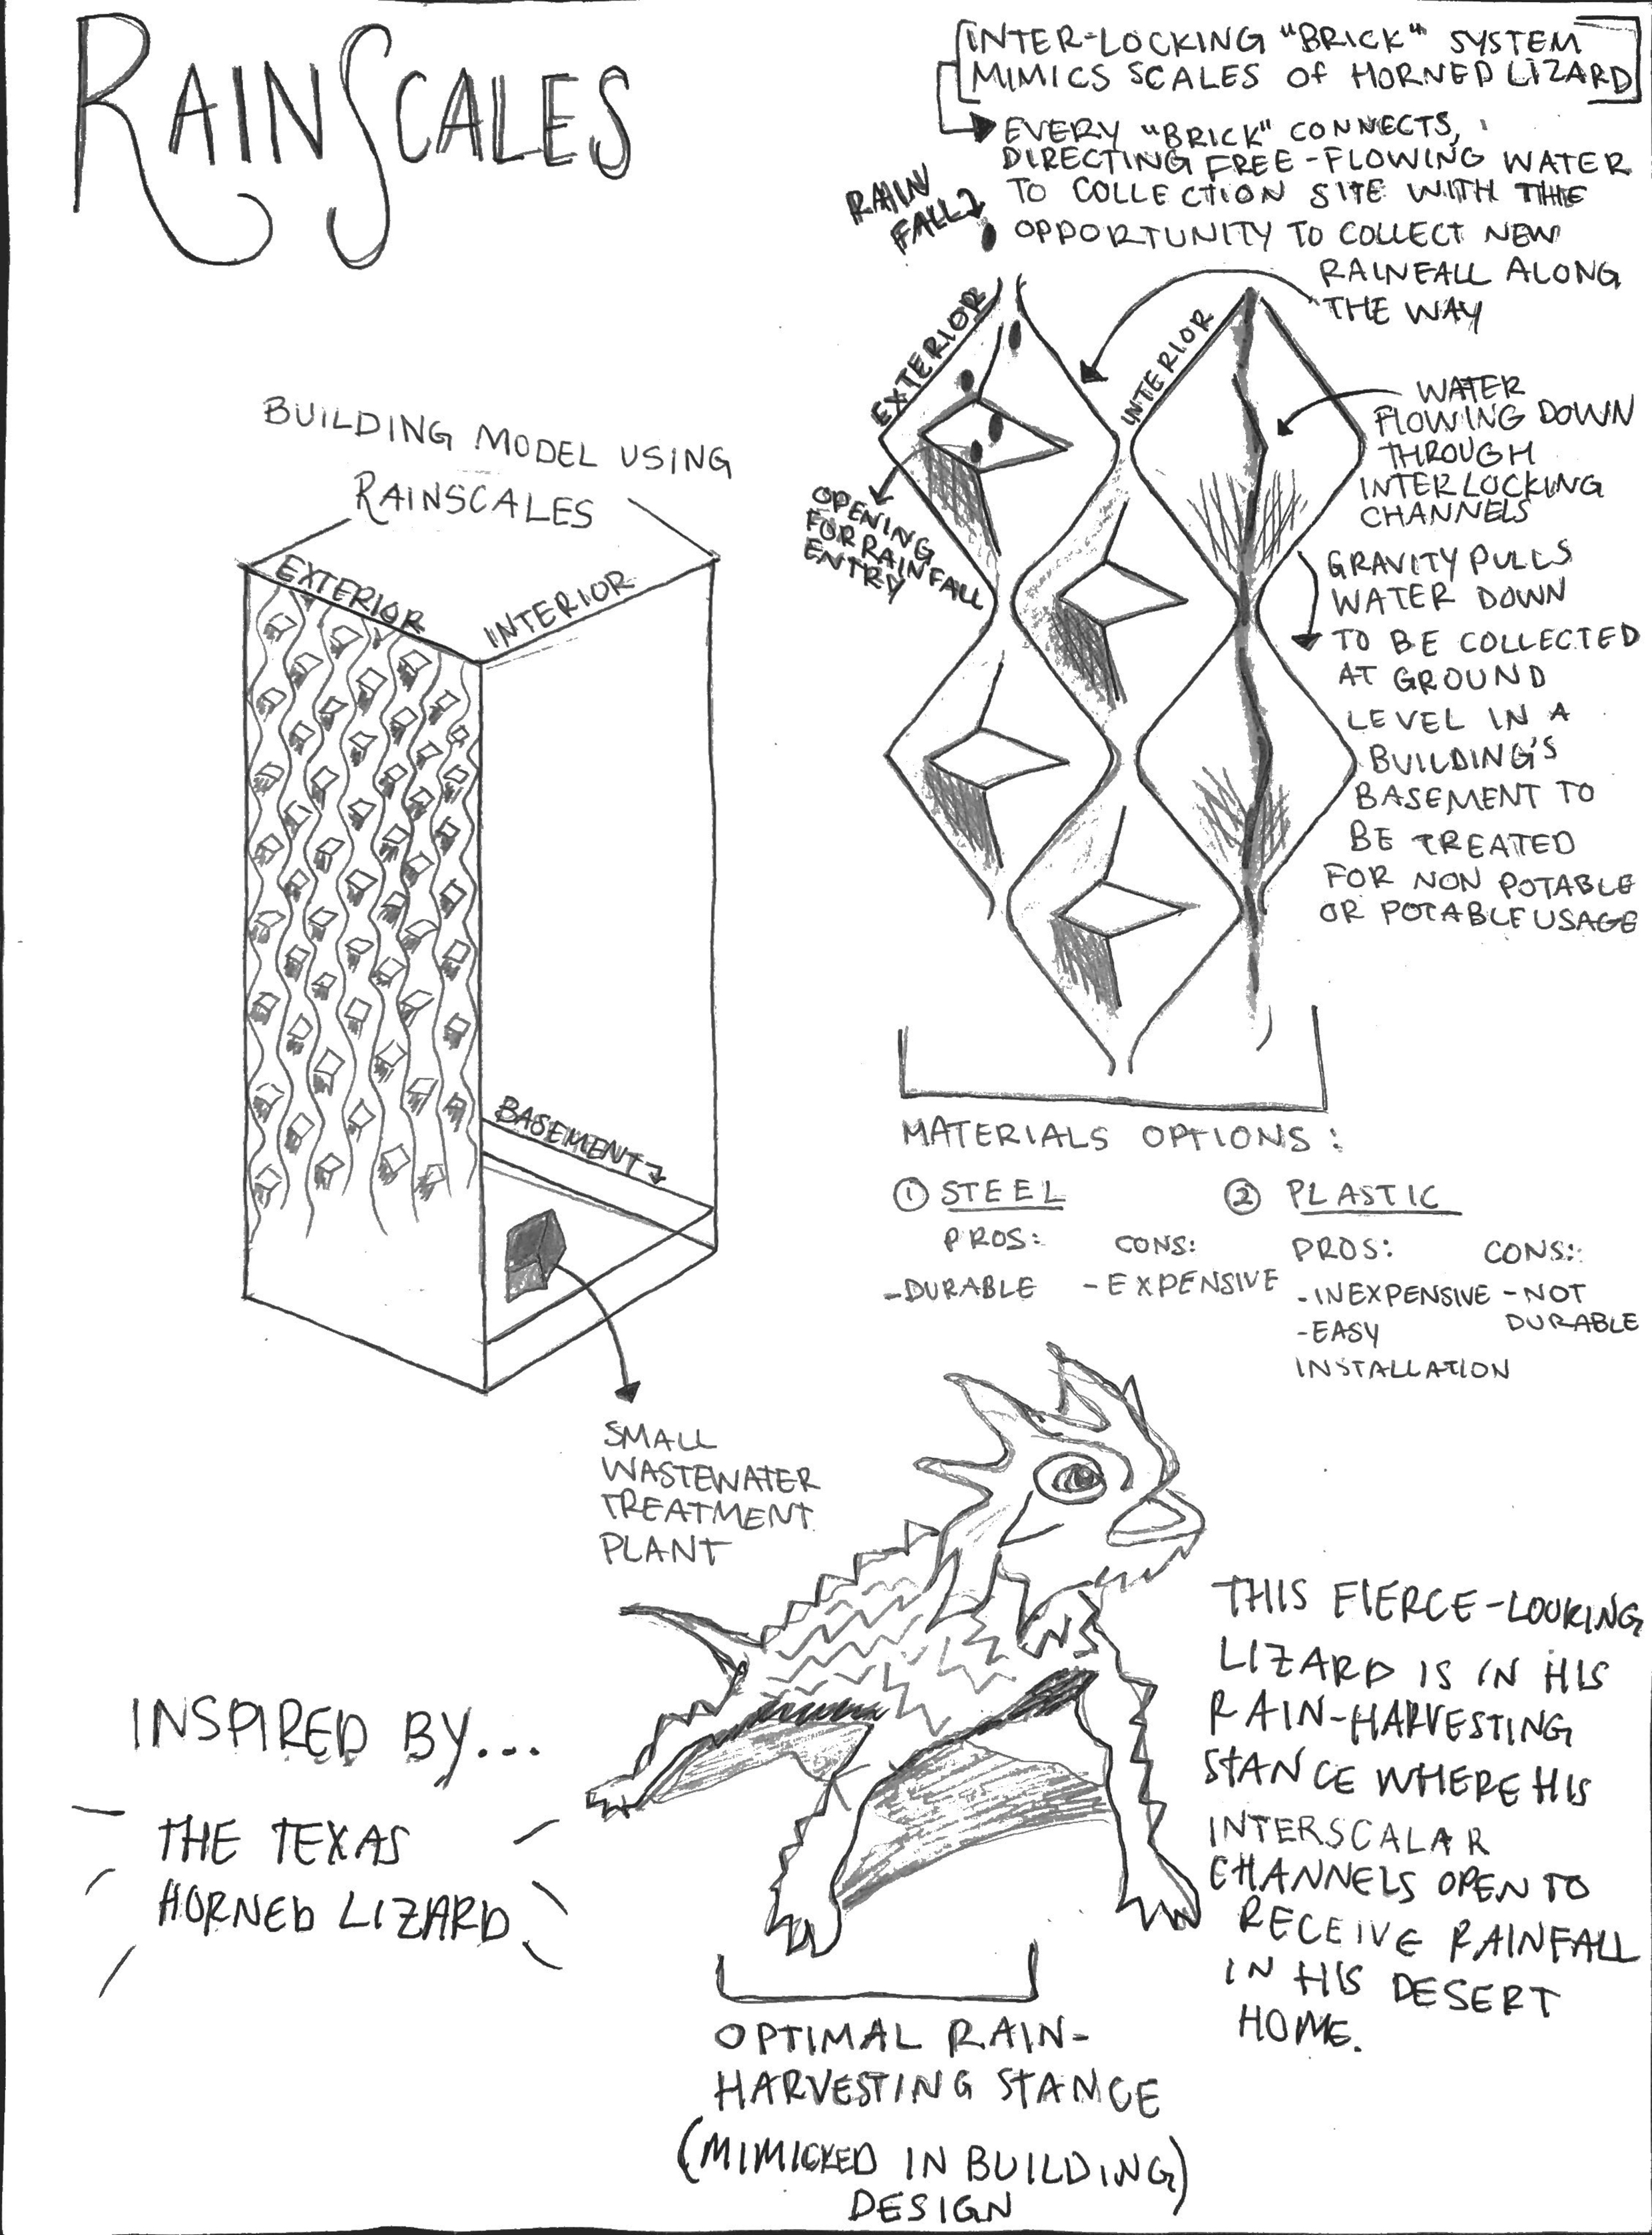 RAINSCALES
INTER-LOCKING "BRICK" SYSTEM
MIMICS SCALES OF HORNED LIZARD
EVERY "BRICK" CONNECTS,
DIRECTING FREE-FLOWING WATER
TO COLLECTION SITE WITH THE
OPPORTUNITY TO COLLECT NEW
RAINFALL ALONG
THE WAY
RAIN
FALL
EXTERIOR
INTERIOR
OPENING
FOR RAINFALL
ENTRY
WATER
FLOWING DOWN
THROUGH
INTERLOCKING
CHANNELS
GRAVITY PULLS
WATER DOWN
TO BE COLLECTED
AT GROUND
LEVEL IN A
BUILDING'S
BASEMENT TO
BE TREATED
FOR NON POTABLE
OR POTABLE USAGE
BUILDING MODEL USING
RAINSCALES
EXTERIOR
INTERIOR
BASEMENT
SMALL
WASTEWATER
TREATMENT
PLANT
MATERIALS OPTIONS:
① STEEL
PROS:
-DURABLE
CONS:
-EXPENSIVE
② PLASTIC
PROS:
-INEXPENSIVE
-EASY
INSTALLATION
CONS:
-NOT
DURABLE
INSPIRED BY...
THE TEXAS
HORNED LIZARD
THIS FIERCE-LOOKING
LIZARD IS IN HIS
RAIN-HARVESTING
STANCE WHERE HIS
INTERSCALAR
CHANNELS OPEN TO
RECEIVE RAINFALL
IN HIS DESERT
HOME.
OPTIMAL RAIN-
HARVESTING STANCE
(MIMICKED IN BUILDING)
DESIGN